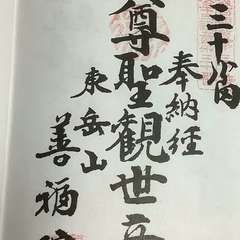 三十八番
奉納経
尊聖観世音
東岳山
善福院